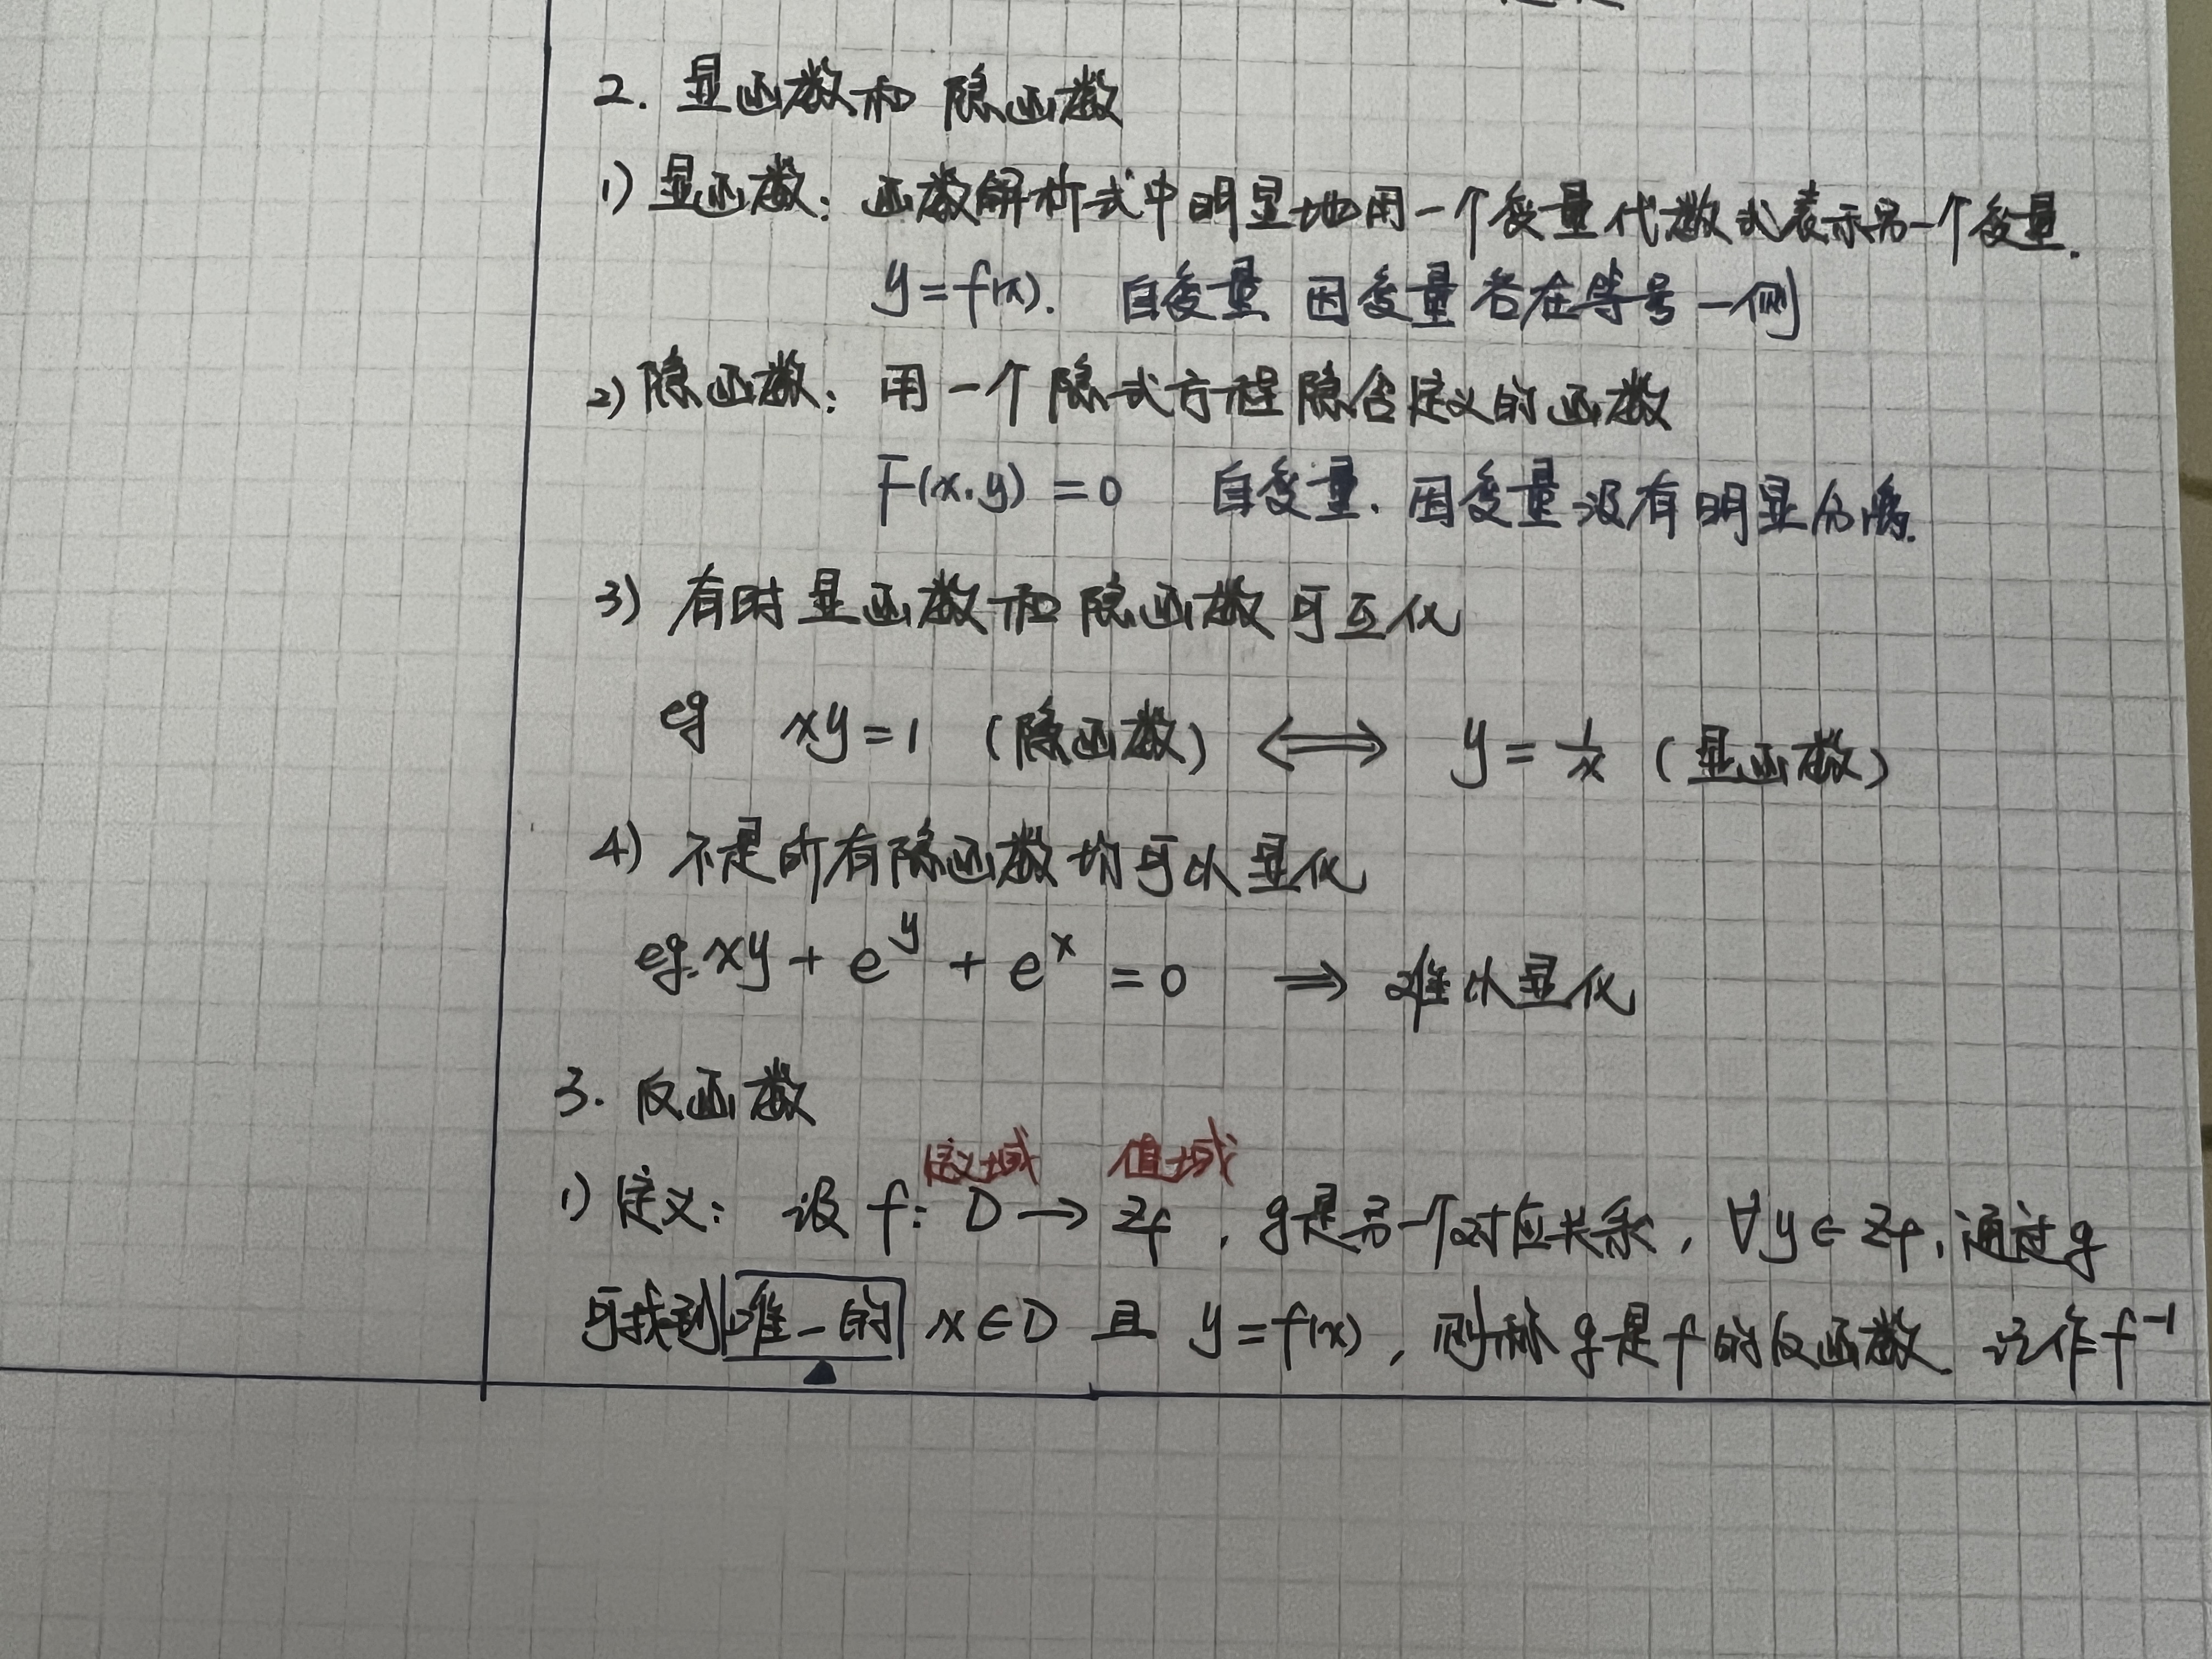 2. 显函数和 隐函数
1) 显函数: 函数解析式中明显地用一个变量代数式表示另一个变量.
y=f(x). 自变量 因变量各在等号一侧
2) 隐函数: 用一个隐式方程隐含定义的函数
F(x.y) = 0 自变量. 因变量没有明显分离.
3) 有时显函数和隐函数可互化
eg xy=1 (隐函数) ⟺ y=1/x (显函数)
4) 不是所有隐函数均可以显化
eg. xy + e^y + e^x = 0 ⇒ 难以显化
3. 反函数
定义域 值域
1) 定义: 设 f: D → Zf , g是另一个对应关系, ∀y∈Zf, 通过g
可找到唯一的 x∈D 且 y=f(x), 则称g是f的反函数 记作f^-1